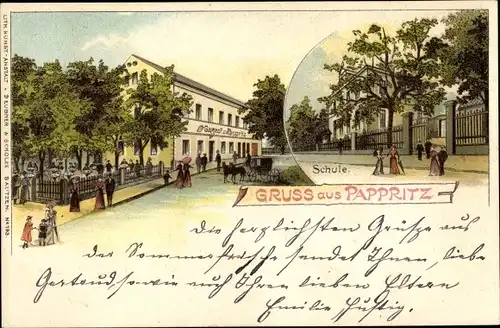 LITH. KUNST-ANSTALT v. DEUBNER & SCHOLZE BAUTZEN. No
Gasthof Pappritz
Schule.
GRUSS aus PAPPRITZ
Die herzlichsten Grüße aus
der Sommerfrische sendet Ihnen, liebe
Gertrud sowie auch Ihren lieben Eltern
Emilie Hustig.